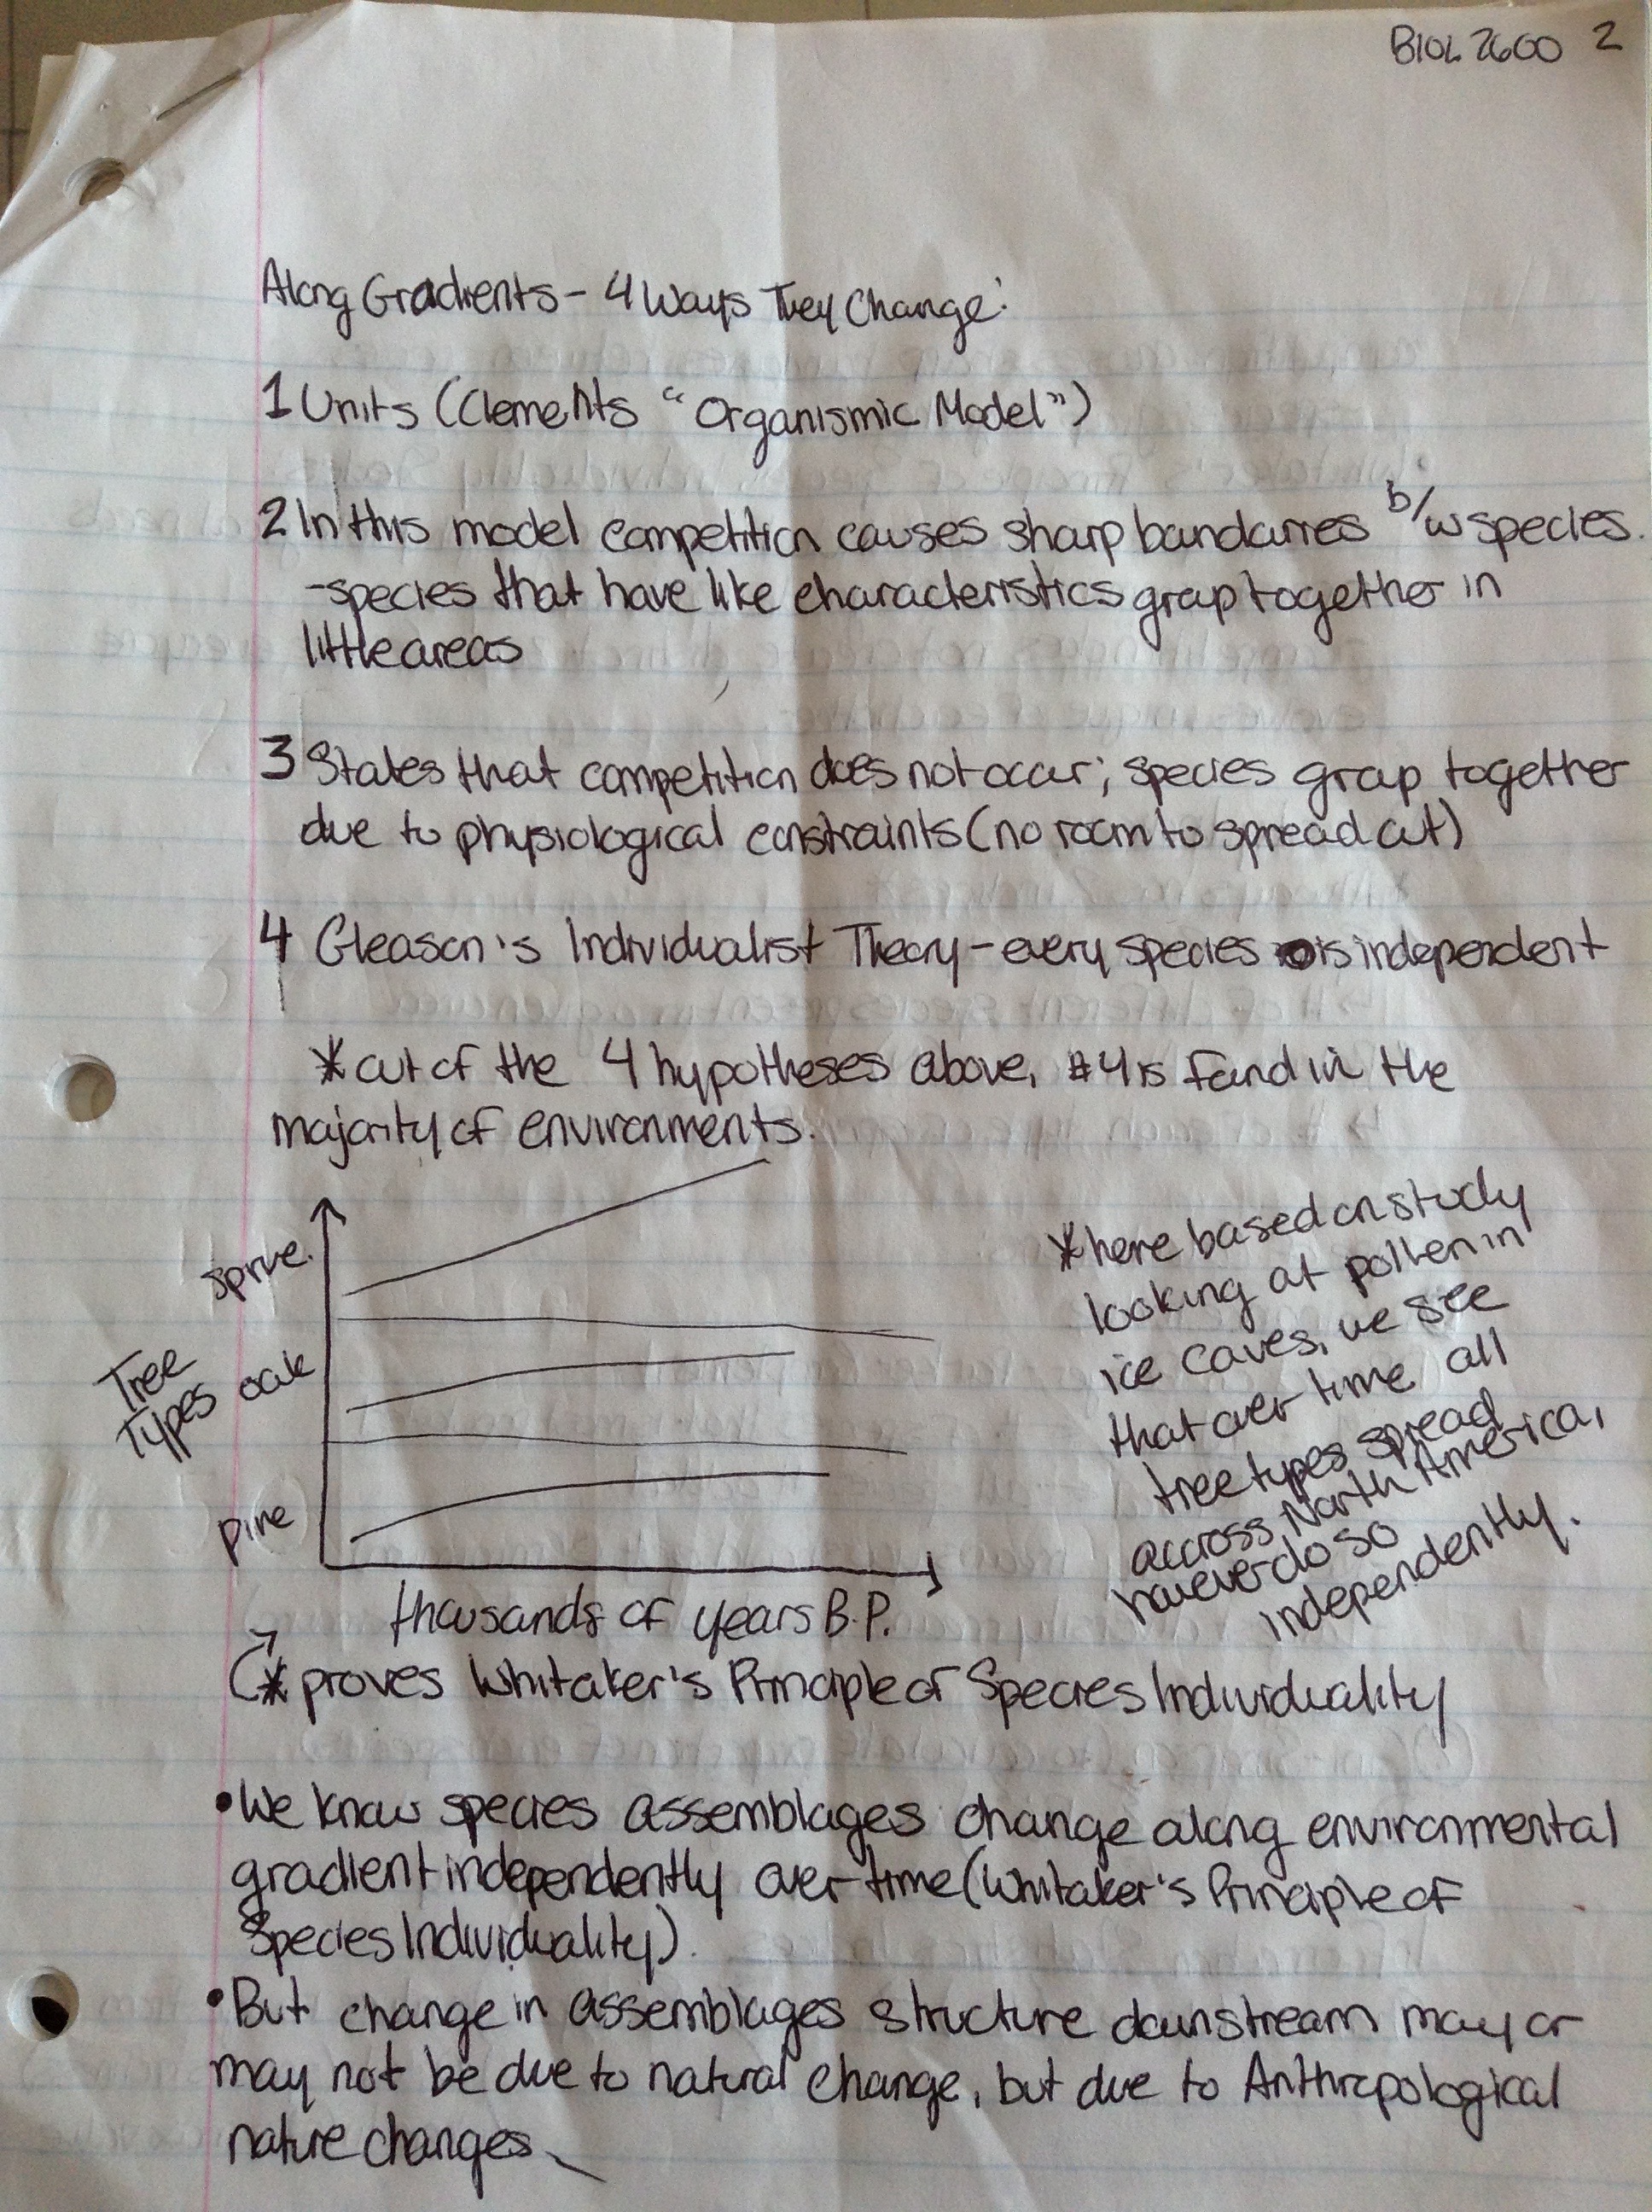 BIOL 2600 2
Along Gradients - 4 Ways They Change:
1 Units (Clements "Organismic Model")
2 In this model competition causes sharp boundarries b/w species.
-species that have like characteristics group together in
little areas
3 States that competition does not occur; species group together
due to physiological constraints (no room to spread out)
4 Gleason's Individualist Theory - every species is independent
* out of the 4 hypotheses above, #4 is found in the
majority of environments.
Tree
Types
sprue.
oak
pine
thousands of years B.P.
* here based on study
looking at pollen in
ice caves, we see
that over time all
tree types spread
accross North America,
however do so
independently.
* proves Whitaker's Principle of Species Individuality
• We know species assemblages change along environmental
gradient independently over time (Whitaker's Principle of
Species Individuality).
• But change in assemblages structure downstream may or
may not be due to natural change, but due to Anthropological
nature changes